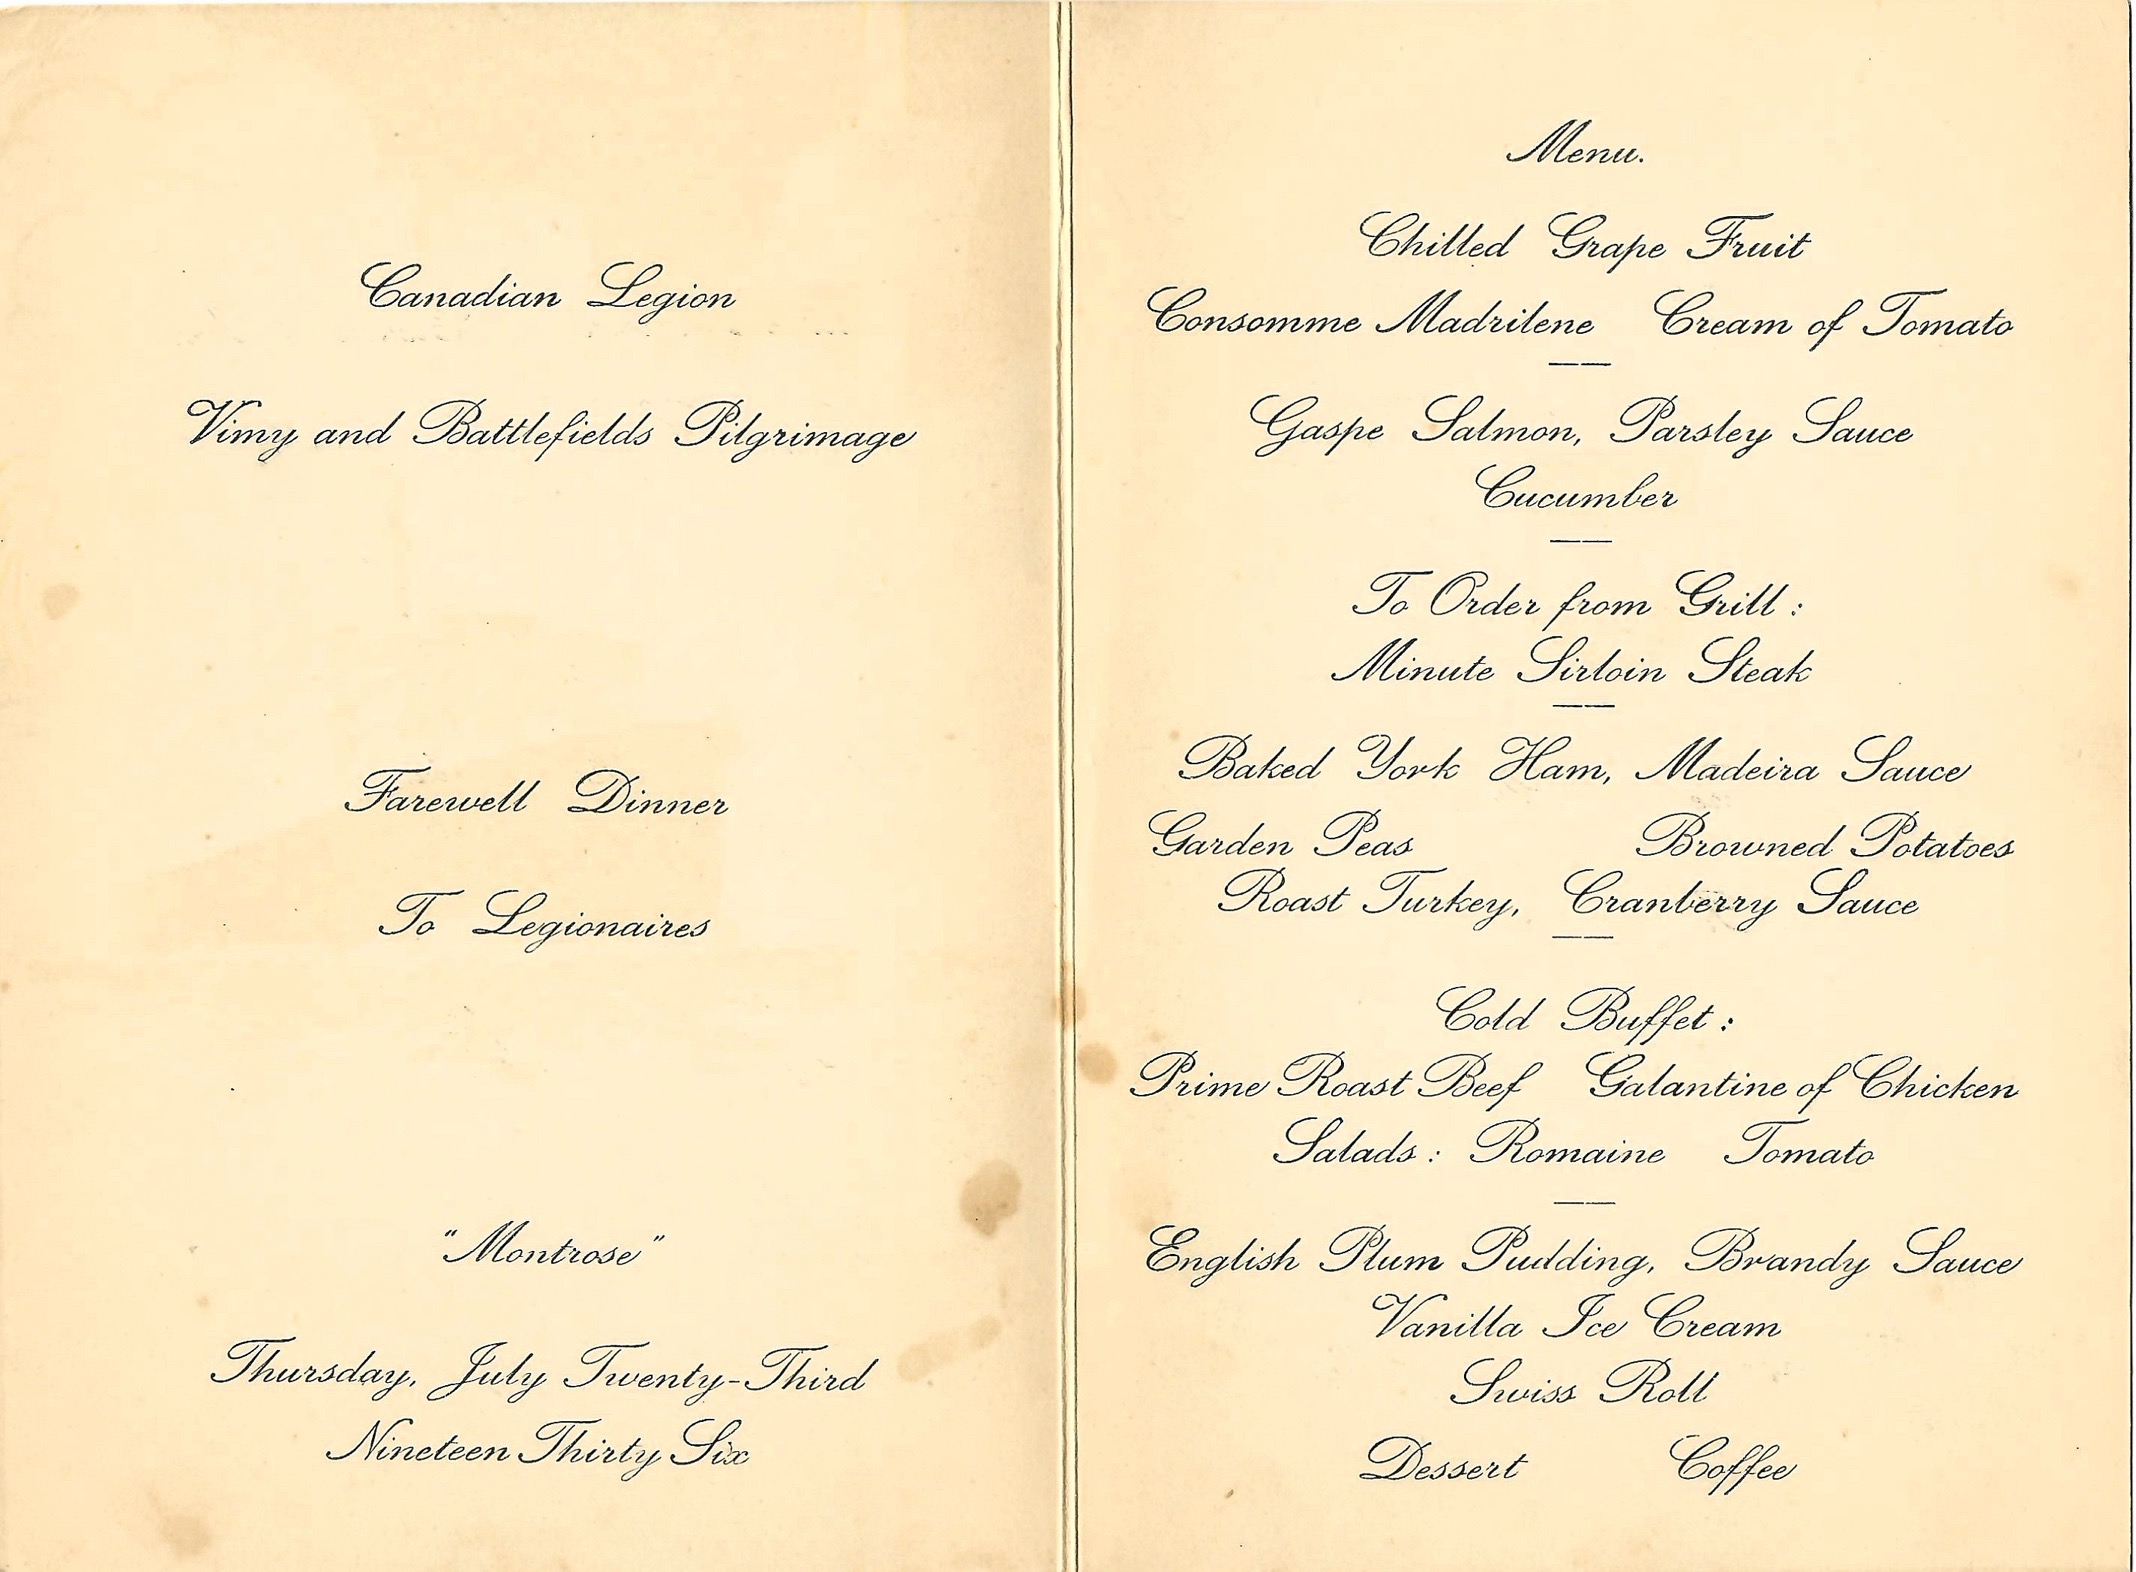 Canadian Legion
Vimy and Battlefields Pilgrimage
Farewell Dinner
To Legionaires
"Montrose"
Thursday, July Twenty-Third
Nineteen Thirty Six
Menu.
Chilled Grape Fruit
Consomme Madrilene Cream of Tomato
Gaspe Salmon, Parsley Sauce
Cucumber
To Order from Grill :
Minute Sirloin Steak
Baked York Ham, Madeira Sauce
Garden Peas Browned Potatoes
Roast Turkey, Cranberry Sauce
Cold Buffet :
Prime Roast Beef Galantine of Chicken
Salads : Romaine Tomato
English Plum Pudding, Brandy Sauce
Vanilla Ice Cream
Swiss Roll
Dessert Coffee